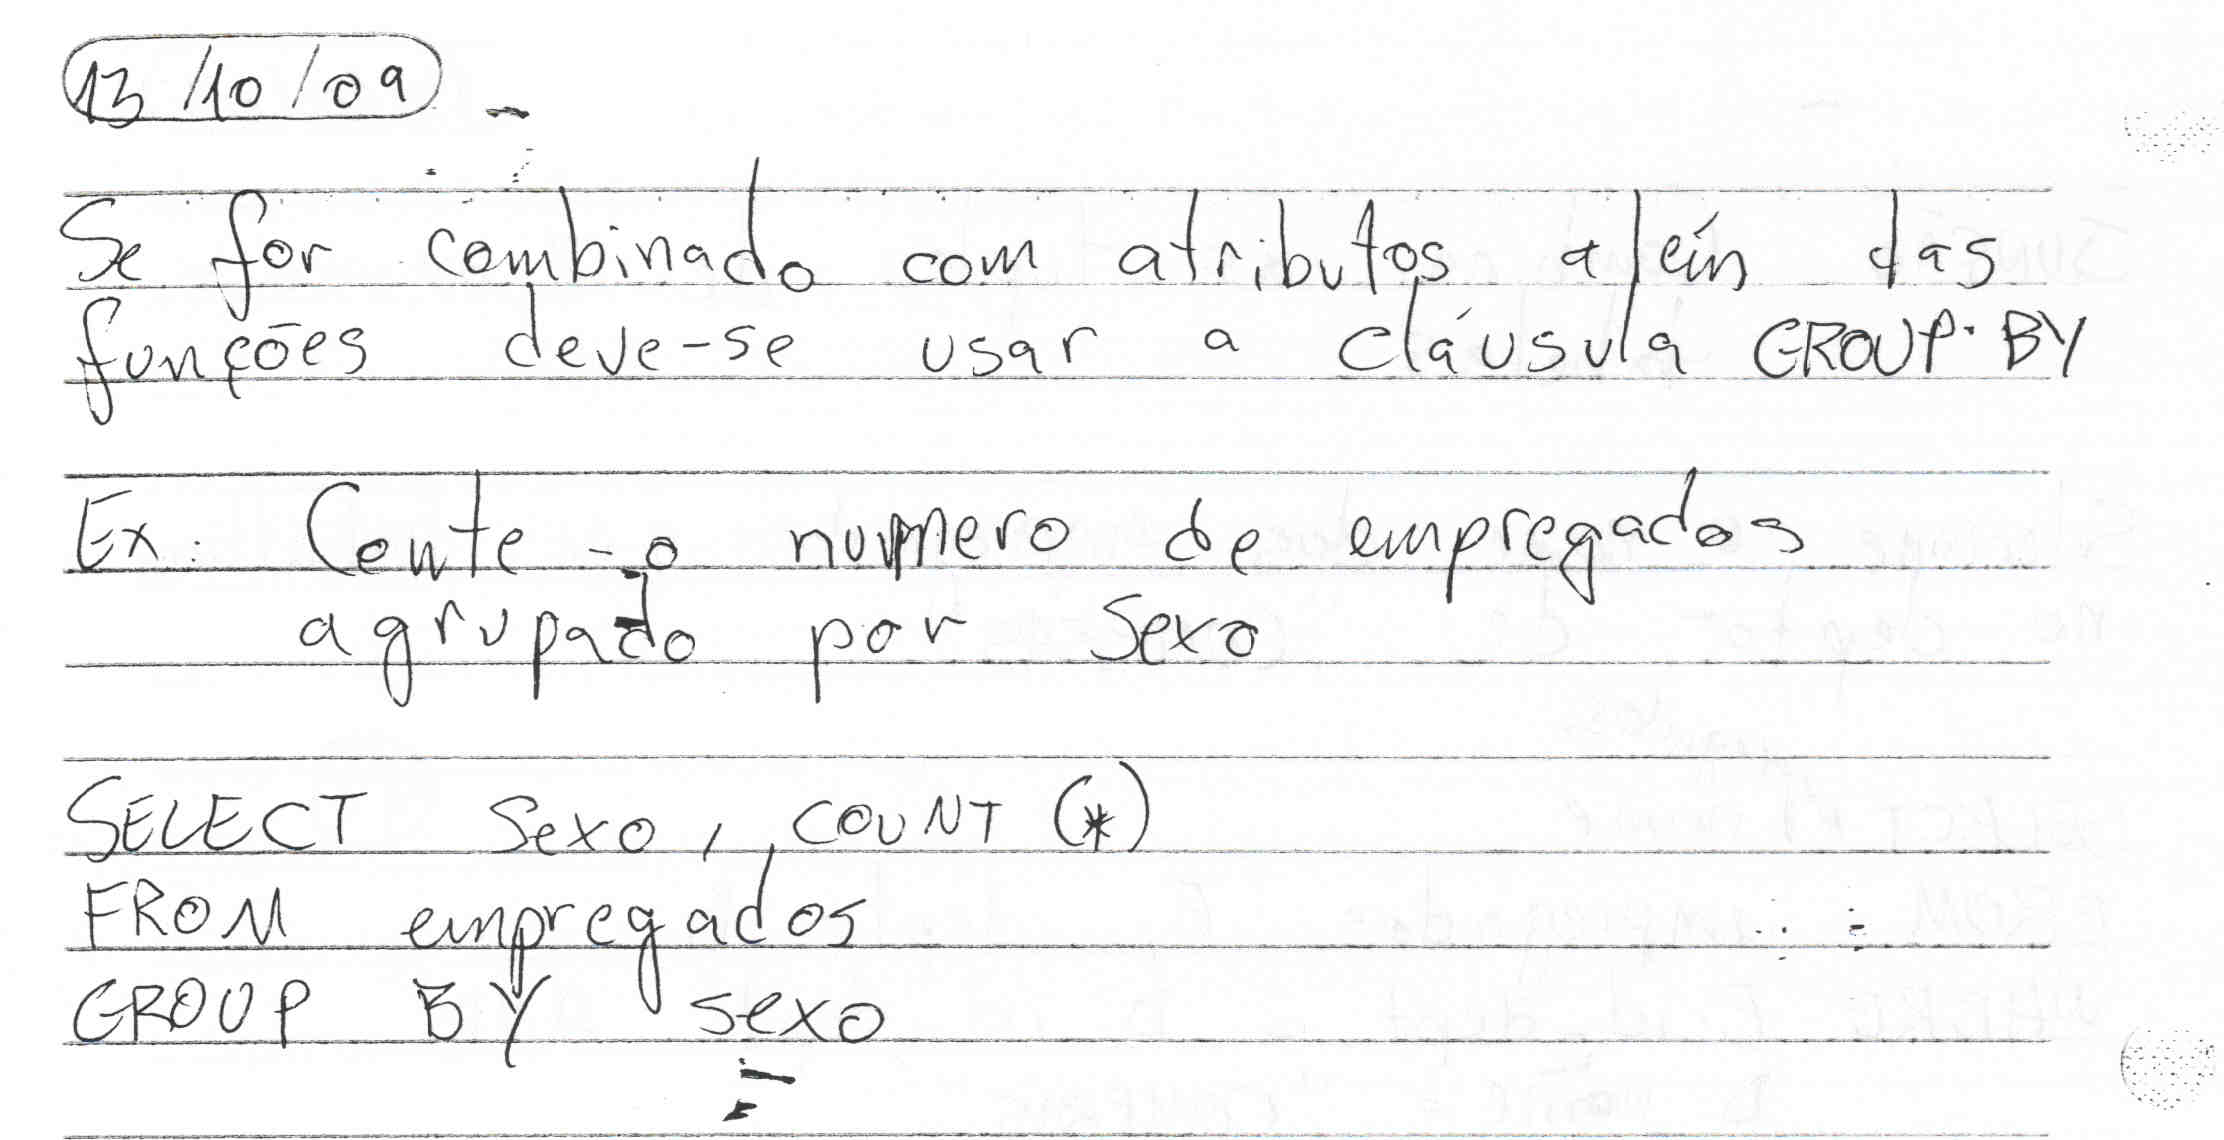 13/10/09
Se for combinado com atributos além das
funções deve-se usar a cláusula GROUP BY
Ex: Conte o numero de empregados
agrupado por Sexo
SELECT Sexo, COUNT (*)
FROM empregados
GROUP BY sexo